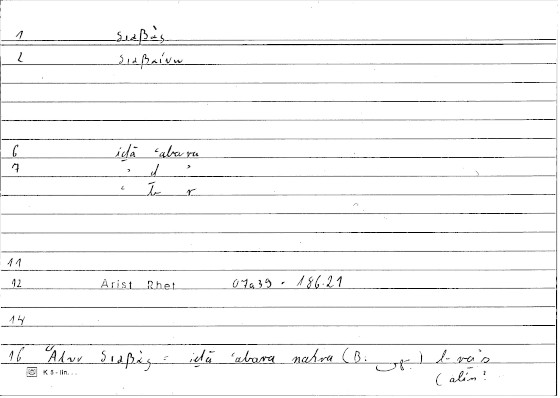 1 διαβὰς
2 διαβαίνω
6 iḏā ʿabara
7 ʾ d ʾ
ʿ b r
11
12 Arist Rhet 07a39 - 186.21
14
16 διαβὰς = iḏā ʿabara nahra (B:
K 5 - lin...